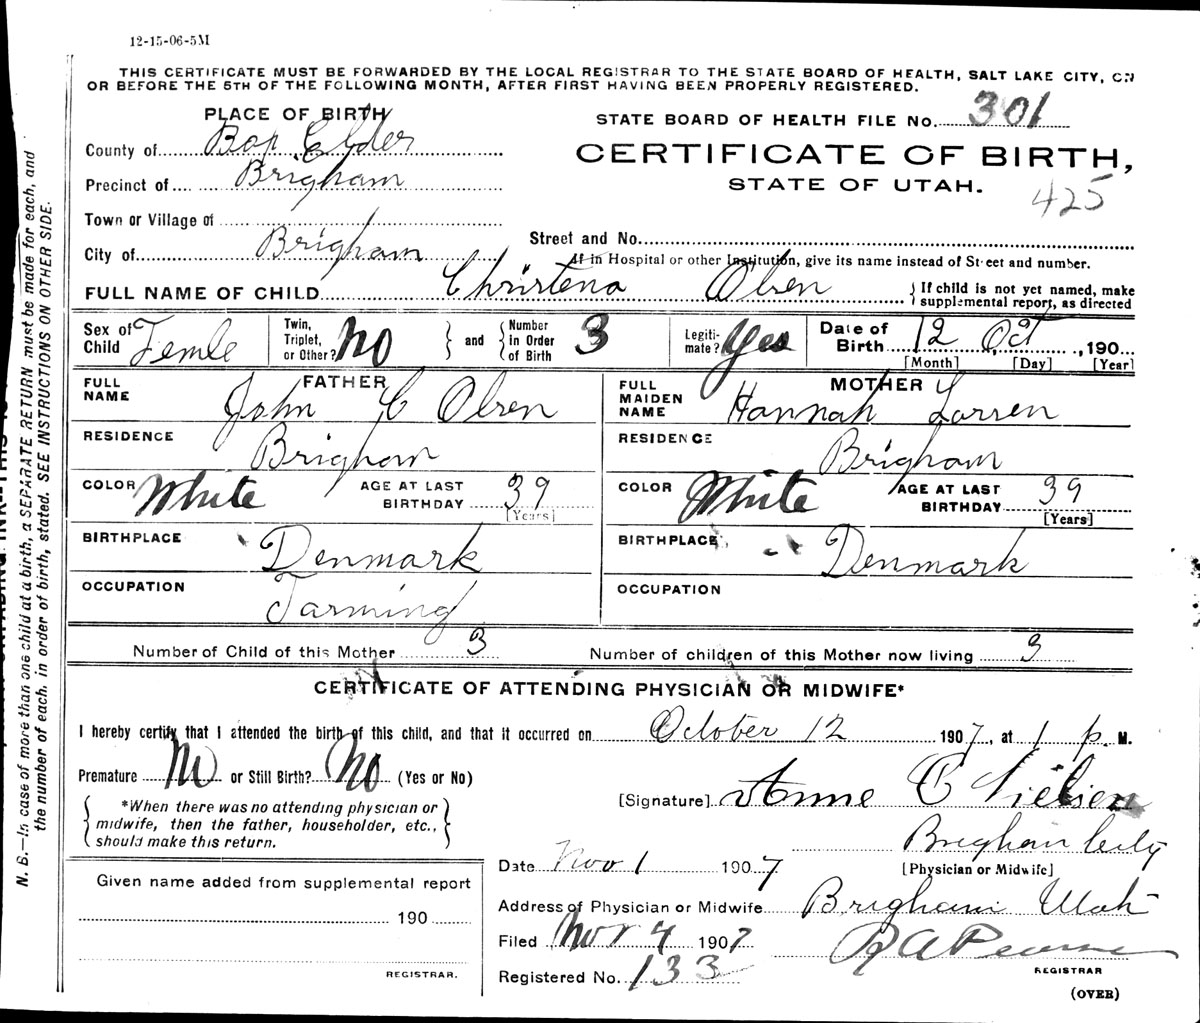 12-15-06-5M
THIS CERTIFICATE MUST BE FORWARDED BY THE LOCAL REGISTRAR TO THE STATE BOARD OF HEALTH, SALT LAKE CITY, ON
OR BEFORE THE 5TH OF THE FOLLOWING MONTH, AFTER FIRST HAVING BEEN PROPERLY REGISTERED.
PLACE OF BIRTH
STATE BOARD OF HEALTH FILE No. 301
County of Box Elder
CERTIFICATE OF BIRTH,
Precinct of Brigham
STATE OF UTAH.
425
Town or Village of
Street and No.
City of Brigham
If in Hospital or other Institution, give its name instead of Street and number.
FULL NAME OF CHILD Christena Olsen { If child is not yet named, make
supplemental report, as directed
Sex of Child Femle
Twin, Triplet, or Other? No } and { Number in Order of Birth 3
Legitimate? Yes
Date of Birth 12 Oct, 190
[Month] [Day] [Year]
FATHER
FULL NAME John C Olsen
MOTHER
FULL MAIDEN NAME Hannah Larsen
RESIDENCE Brigham
RESIDENCE Brigham
COLOR White AGE AT LAST BIRTHDAY 39
[Years]
COLOR White AGE AT LAST BIRTHDAY 39
[Years]
BIRTHPLACE Denmark
BIRTHPLACE Denmark
OCCUPATION Farming
OCCUPATION
Number of Child of this Mother 3
Number of children of this Mother now living 3
CERTIFICATE OF ATTENDING PHYSICIAN OR MIDWIFE*
I hereby certify that I attended the birth of this child, and that it occurred on October 12 1907, at 1 p. M.
Premature No or Still Birth? No (Yes or No)
[Signature] Anne C Nielsen
*When there was no attending physician or
midwife, then the father, householder, etc.,
should make this return.
Brigham City
[Physician or Midwife]
Date Nov 1 1907
Given name added from supplemental report
190
REGISTRAR.
Address of Physician or Midwife Brigham Utah
Filed Nov 4 1907
R A Pearse
REGISTRAR
Registered No. 133
(OVER)
N. B.—In case of more than one child at a birth, a SEPARATE RETURN must be made for each, and
the number of each, in order of birth, stated. SEE INSTRUCTIONS ON OTHER SIDE.